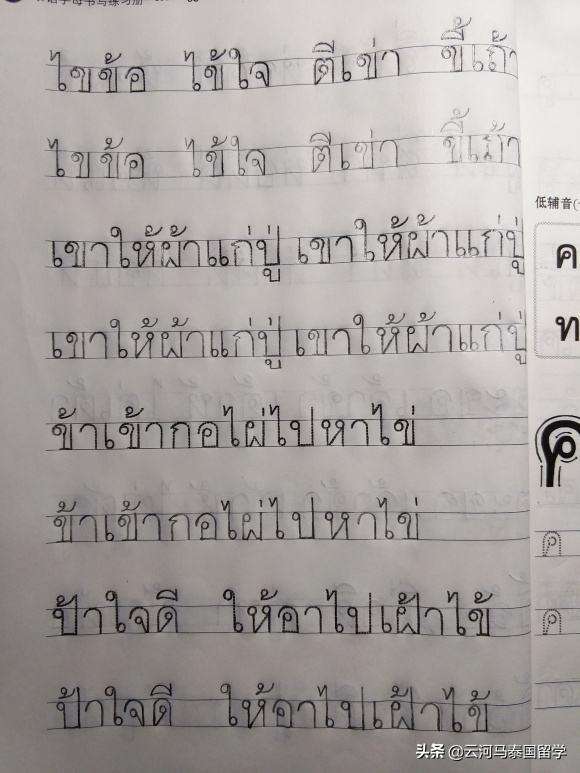 语字母书写练习册
ไขข้อ ไข้ใจ ตีเข่า ขี้เถ้า
ไขข้อ ไข้ใจ ตีเข่า ขี้เถ้า
เขาให้ผ้าแก่ปู่ เขาให้ผ้าแก่ปู่
เขาให้ผ้าแก่ปู่ เขาให้ผ้าแก่ปู่
ข้าเข้ากอไผ่ไปหาไข่
ข้าเข้ากอไผ่ไปหาไข่
ป้าใจดี ให้อาไปเฝ้าไข้
ป้าใจดี ให้อาไปเฝ้าไข้
低辅音(
ค
ท
ค
ค
ค
头条 @云河马泰国留学